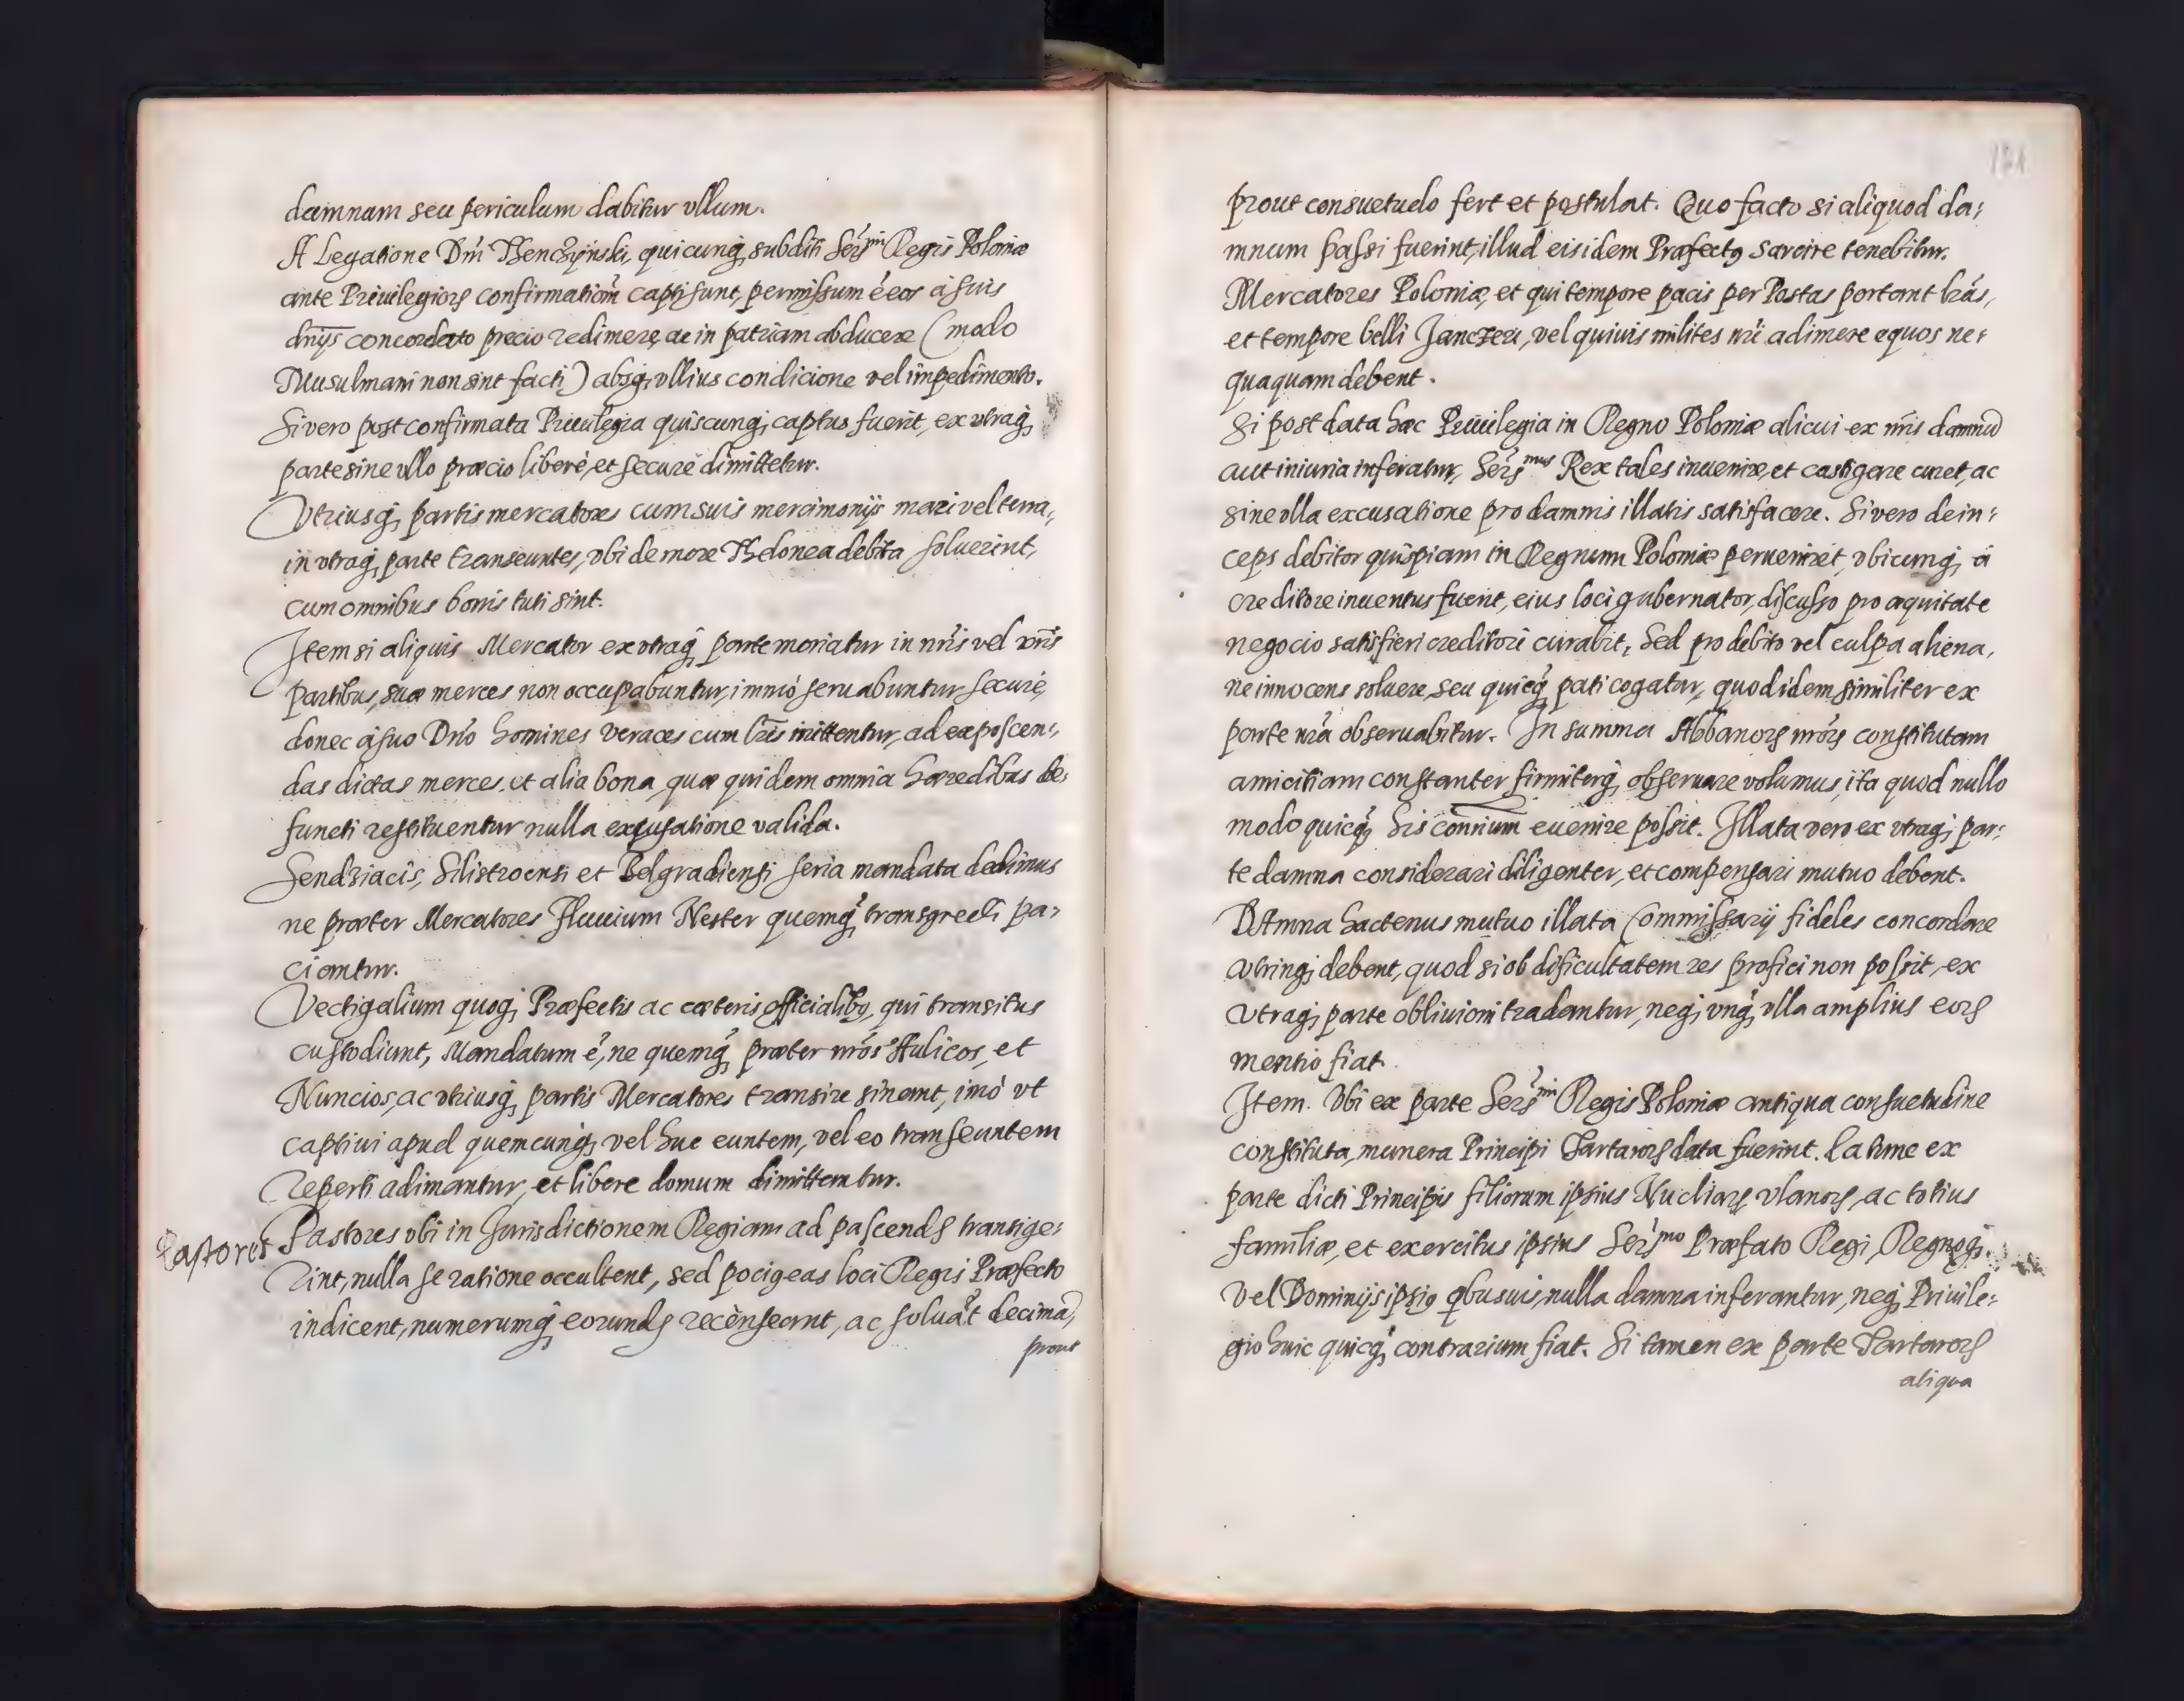 damnum seu periculum dabitur vllum.
A Legatione Dñi Thenczÿnski, quicunq; subditi Serᵐⁱ Regis Poloniæ
ante Priuilegiorꝝ confirmationẽ capti sunt, permissum ẽ eos à suis
dnÿs concordato precio redimere, ac in patriam abducere (modo
Musulmani non sint facti) absq; vllius condicione vel impedimento.
Si vero post confirmata Priuilegia quiscunq; captus fuerit, ex vtraq;
parte sine vllo præcio liberè, et securè dimittetur.
Vtriusq; partis mercatores cum suis mercimonijs mari vel terra,
in vtraq; parte transeuntes, vbi de more Thelonea debita soluerint,
cum omnibus bonis tuti sint.
Item si aliquis Mercator ex vtraq; parte moriatur in nr̃is vel vr̃is
partibus, suæ merces non occupabuntur, immò seruabuntur securè,
donec à suo Dño homines veraces cum l̃ris mittentur, ad exposcen-
das dictas merces, et alia bona, quæ quidem omnia hæredibus de-
functi restituentur nulla excusatione valida.
Sendziacis, Silistroensi et Belgradiensi seria mandata dedimus
ne præter Mercatores Fluuium Nester quemq̃; transgredi pa-
ciantur.
Vectigalium quoq; Præfectis ac cæteris officialibꝫ, qui transitus
custodiunt, Mandatum ẽ, ne quemq̃; præter nr̃os Aulicos, et
Nuncios, ac vtriusq; partis Mercatores transire sinant, imò vt
captiui apud quemcunq; vel huc euntem, vel eo transeuntem
reperti adimantur, et libere domum dimittantur.
Pastores
Pastores vbi in Jurisdictionem Regiam ad pascendꝝ transige-
rint, nulla se ratione occultent, sed pocigeas loci Regis Præfecto
indicent, numerumq; eorundꝝ recenseant, ac soluãt decimã,
prout
121
prout consuetudo fert et postulat. Quo facto si aliquod da-
mnum passi fuerint, illud eisidem Præfectꝰ sarcire tenebitur.
Mercatores Poloniæ, et qui tempore pacis per Postas portant l̃ras,
et tempore belli Janczeri, vel quiuis milites nr̃i adimere equos ne-
quaquam debent.
Si post data hæc Priuilegia in Regno Poloniæ alicui ex nr̃is damnũ
aut iniuria inferatur, Serᵐᵘˢ Rex tales inuenire, et castigare curet, ac
sine vlla excusatione pro damnis illatis satisfacere. Si vero dein-
ceps debitor quispiam in Regnum Poloniæ perueniret, vbicunq; à
creditore inuentus fuerit, eius loci gubernator, discusso pro æquitate
negocio satisfieri creditori curabit, Sed pro debito vel culpa aliena,
ne innocens soluere, seu quicq̃; pati cogatur, quod idem similiter ex
parte nr̃a obseruabitur. In summa Abbanorꝝ nr̃orꝝ constitutam
amicitiam constanter firmiterq; obseruare volumus, ita quod nullo
modo quicq̃; his contrium euenire possit. Illata vero ex vtraq; par-
te damna considerari diligenter, et compensari mutuo debent.
DAmna hactenus mutuo illata Commissarij fideles concordare
vtrinq; debent, quod si ob dificultatem res profici non possit, ex
vtraq; parte obliuioni tradantur, neq; vnq̃; vlla amplius eorꝝ
mentio fiat.
Item. Vbi ex parte Serᵐⁱ Regis Poloniæ antiqua consuetudine
constituta, munera Principi Tartarorꝝ data fuerint. Ea tunc ex
parte dicti Principis filiorum ipsius Nucliarꝝ vlanorꝝ, ac totius
familiæ, et exercitus ipsius Serᵐᵒ Præfato Regi, Regnoq;
vel Dominijs ipsiꝰ qbusuis, nulla damna inferantur, neq; Priuile-
gio huic quicq̃; contrarium fiat. Si tamen ex parte Tartarorꝝ
aliqua